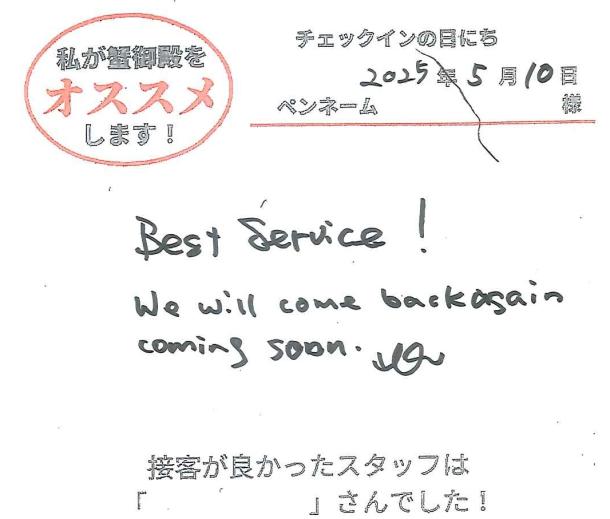 私が蟹御殿を
オススメ
します！
チェックインの日にち
2025年5月10日
ペンネーム 様
Best Service!
We will come back again
coming soon.
接客が良かったスタッフは
「 」さんでした！